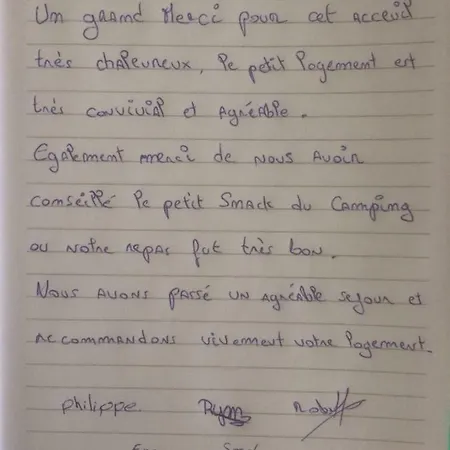 Un grand Merci pour cet acceuil
très chaleureux, le petit logement est
très convivial et Agréable.
Egalement merci de nous avoir
conseillé le petit Smack du Camping
ou notre repas fut très bon.
Nous avons passé un agréable sejour et
accommandons vivement votre logement.
Philippe Ryan